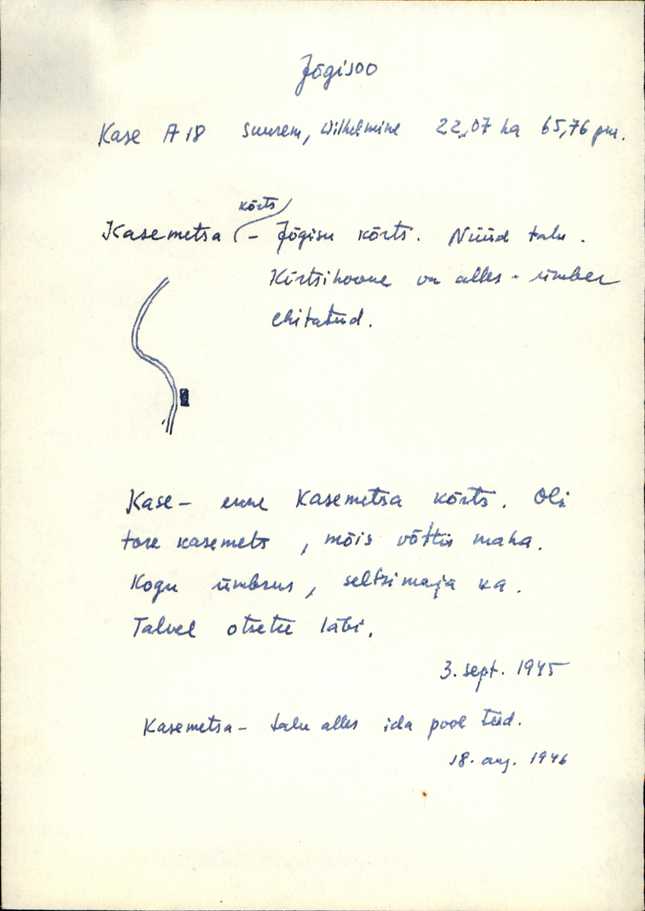 Jõgisoo
Kase A 18 Suurem, Wilhelmine 22,07 ha 65,76 pm.
kõrts
Kasemetsa - Jõgisu kõrts. Nüüd talu.
Kõrtsihoone on alles - ümber
ehitatud.
Kase - enne Kasemetsa kõrts. Oli
tore kasemets, mõis võttis maha.
Kogu ümbrus, seltsimaja ka.
Talvel otsetee läbi.
3. sept. 1945
Kasemetsa - talu alles ida pool teed.
18. aug. 1946